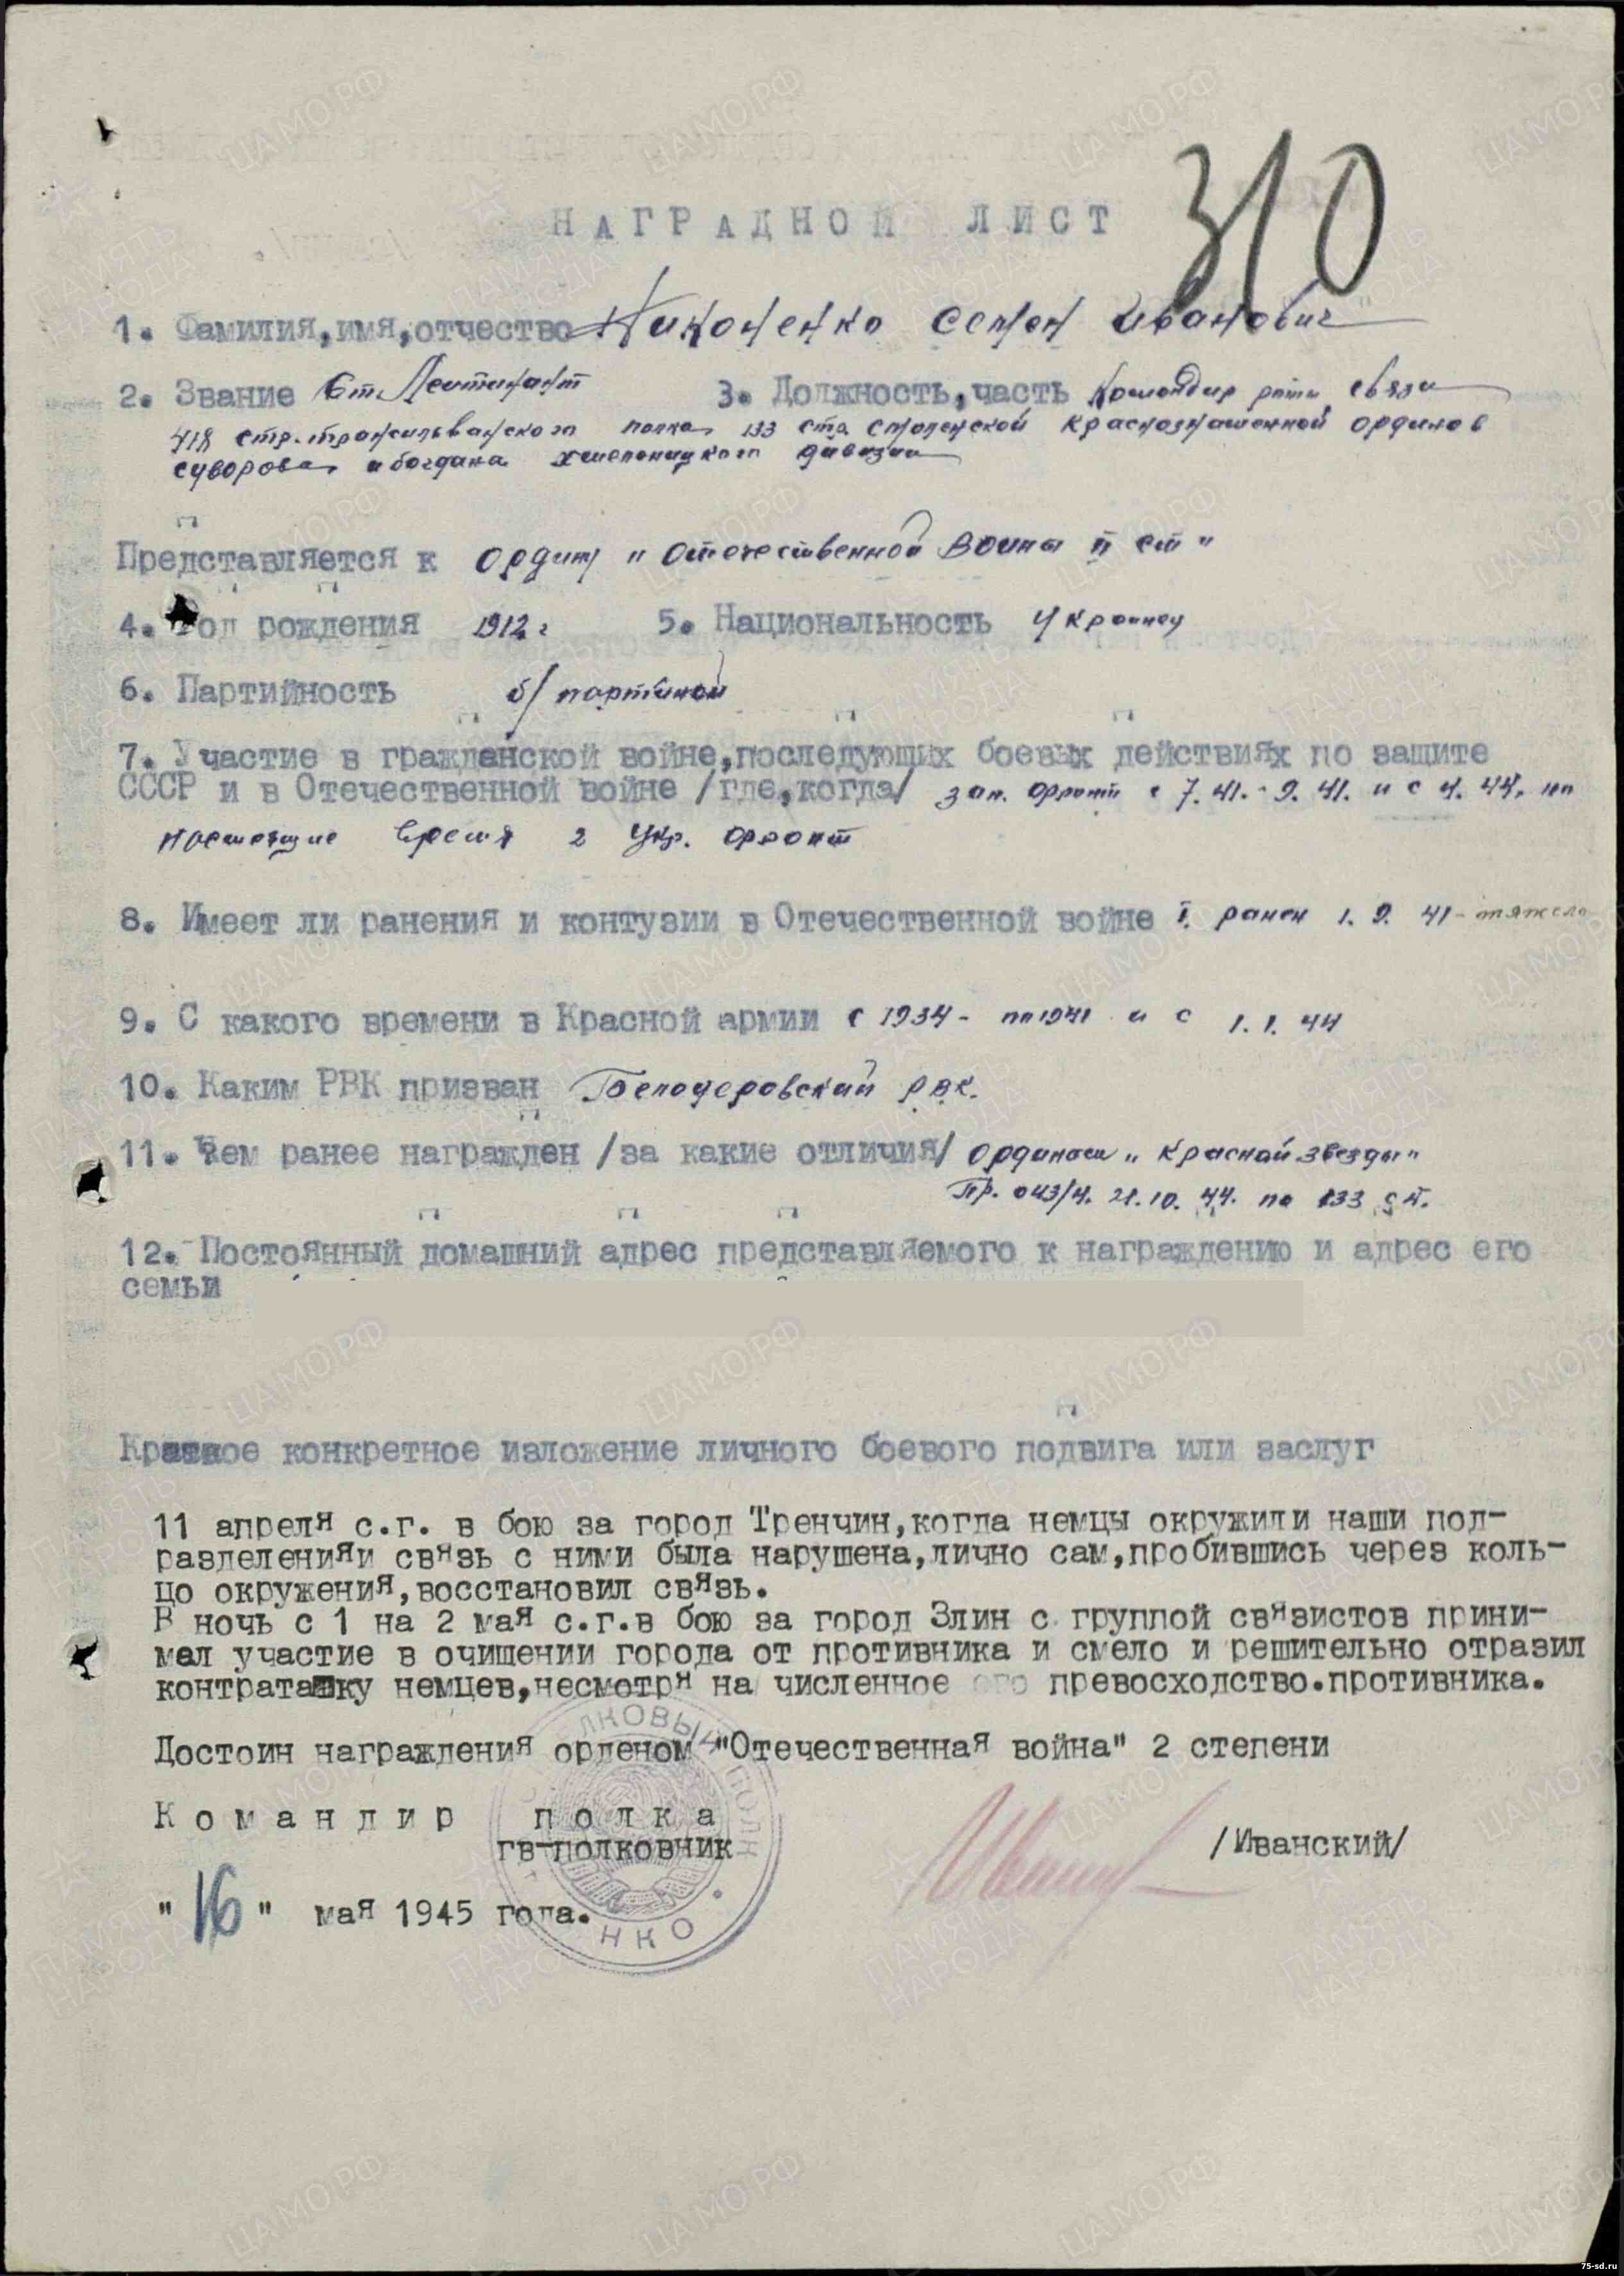 310
НАГРАДНОЙ ЛИСТ
1. Фамилия,имя,отчество Никоненко Семен Иванович
2. Звание Ст. Лейтенант 3. Должность,часть Командир роты связи
418 стр. трансильванского полка 133 стр. Смоленской Краснознаменной орденов
Суворова и Богдана Хмельницкого дивизии
Представляется к ордену "Отечественной Войны II ст"
4. Год рождения 1912 г 5. Национальность Украинец
6. Партийность б/партийной
7. Участие в гражданской войне,последующих боевых действиях по защите
СССР и в Отечественной войне /где,когда/ зап. фронт с 7.41.-9.41. и с 4.44. по
настоящие время 2 Укр. фронт
8. Имеет ли ранения и контузии в Отечественной войне I. ранен 1.9.41-тяжело
9. С какого времени в Красной армии с 1934- по 1941 и с 1.1.44
10. Каким РВК призван Белоцерковский РВК.
11. Чем ранее награжден /за какие отличия/ Орденом "Красной Звезды"
Пр. 043/н. 21.10.44. по 133 сд.
12. Постоянный домашний адрес представляемого к награждению и адрес его
семьи
Краткое конкретное изложение личного боевого подвига или заслуг
11 апреля с.г. в бою за город Тренчин,когда немцы окружили наши под-
разделенияи связь с ними была нарушена,лично сам,пробившись через коль-
цо окружения,восстановил связь.
В ночь с 1 на 2 мая с.г.в бою за город Злин с группой связистов прини-
мал участие в очищении города от противника и смело и решительно отразил
контратаку немцев,несмотря на численное его превосходство.противника.
Достоин награждения орденом "Отечественная война" 2 степени
Командир полка
гв-полковник /Иванский/
"16" мая 1945 года.
НКО
75-sd.ru